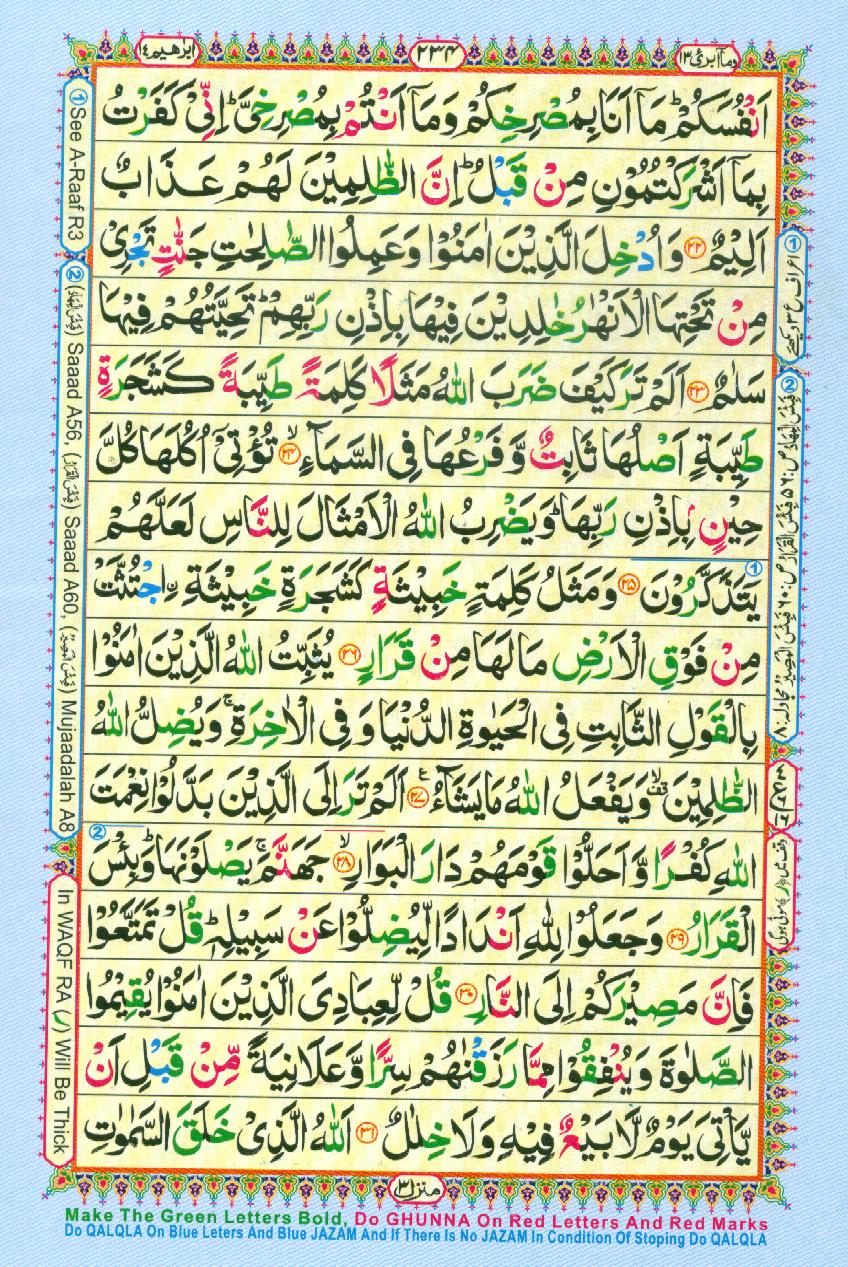 ابرٰهيم ١٤
٢٣٤
وماۤ ابرئ ١٣
اَنْفُسَكُمْ ؕ مَاۤ اَنَا بِمُصْرِخِكُمْ وَمَاۤ اَنْتُمْ بِمُصْرِخِىَّ ؕ اِنِّىْ كَفَرْتُ
بِمَاۤ اَشْرَكْتُمُوْنِ مِنْ قَبْلُ ؕ اِنَّ الظّٰلِمِيْنَ لَهُمْ عَذَابٌ
اَلِيْمٌ ﴿۲۲﴾ وَاُدْخِلَ الَّذِيْنَ اٰمَنُوْا وَعَمِلُوا الصّٰلِحٰتِ جَنّٰتٍ تَجْرِىْ
مِنْ تَحْتِهَا الْاَنْهٰرُ خٰلِدِيْنَ فِيْهَا بِاِذْنِ رَبِّهِمْ ؕ تَحِيَّتُهُمْ فِيْهَا
سَلٰمٌ ﴿۲۳﴾ اَلَمْ تَرَ كَيْفَ ضَرَبَ اللّٰهُ مَثَلًا كَلِمَةً طَيِّبَةً كَشَجَرَةٍ
طَيِّبَةٍ اَصْلُهَا ثَابِتٌ وَّفَرْعُهَا فِى السَّمَآءِ ۙ ﴿۲۴﴾ تُؤْتِىْۤ اُكُلَهَا كُلَّ
حِيْنٍۭ بِاِذْنِ رَبِّهَا ؕ وَيَضْرِبُ اللّٰهُ الْاَمْثَالَ لِلنَّاسِ لَعَلَّهُمْ
يَتَذَكَّرُوْنَ ﴿۲۵﴾ وَمَثَلُ كَلِمَةٍ خَبِيْثَةٍ كَشَجَرَةٍ خَبِيْثَةِ ۟ اِ۬جْتُثَّتْ ①
مِنْ فَوْقِ الْاَرْضِ مَا لَهَا مِنْ قَرَارٍ ﴿۲۶﴾ يُثَبِّتُ اللّٰهُ الَّذِيْنَ اٰمَنُوْا
بِالْقَوْلِ الثَّابِتِ فِى الْحَيٰوةِ الدُّنْيَا وَفِى الْاٰخِرَةِ ۚ وَيُضِلُّ اللّٰهُ
الظّٰلِمِيْنَ ۙ۟ وَيَفْعَلُ اللّٰهُ مَا يَشَآءُ ﴿۲۷﴾ اَلَمْ تَرَ اِلَى الَّذِيْنَ بَدَّلُوْا نِعْمَتَ
اللّٰهِ كُفْرًا وَّاَحَلُّوْا قَوْمَهُمْ دَارَ الْبَوَارِ ۙ ﴿۲۸﴾ جَهَنَّمَ ۚ يَصْلَوْنَهَا ؕ وَبِئْسَ ②
الْقَرَارُ ﴿۲۹﴾ وَجَعَلُوْا لِلّٰهِ اَنْدَادًا لِّيُضِلُّوْا عَنْ سَبِيْلِهٖ ؕ قُلْ تَمَتَّعُوْا
فَاِنَّ مَصِيْرَكُمْ اِلَى النَّارِ ﴿۳۰﴾ قُلْ لِّعِبَادِىَ الَّذِيْنَ اٰمَنُوْا يُقِيْمُوا
الصَّلٰوةَ وَيُنْفِقُوْا مِمَّا رَزَقْنٰهُمْ سِرًّا وَّعَلَانِيَةً مِّنْ قَبْلِ اَنْ
يَّاْتِىَ يَوْمٌ لَّا بَيْعٌ فِيْهِ وَلَا خِلٰلٌ ﴿۳۱﴾ اَللّٰهُ الَّذِىْ خَلَقَ السَّمٰوٰتِ
منزل ٣
① See A-Raaf R3
② (فَبِئْسَ الْمِهَادُ) Saaad A56, (فَبِئْسَ الْقَرَارُ) Saaad A60, (فَبِئْسَ الْمَصِيْرُ) Mujaadalah A8
In WAQF RA (ر) Will Be Thick
Make The Green Letters Bold, Do GHUNNA On Red Letters And Red Marks
Do QALQLA On Blue Leters And Blue JAZAM And If There Is No JAZAM In Condition Of Stoping Do QALQLA